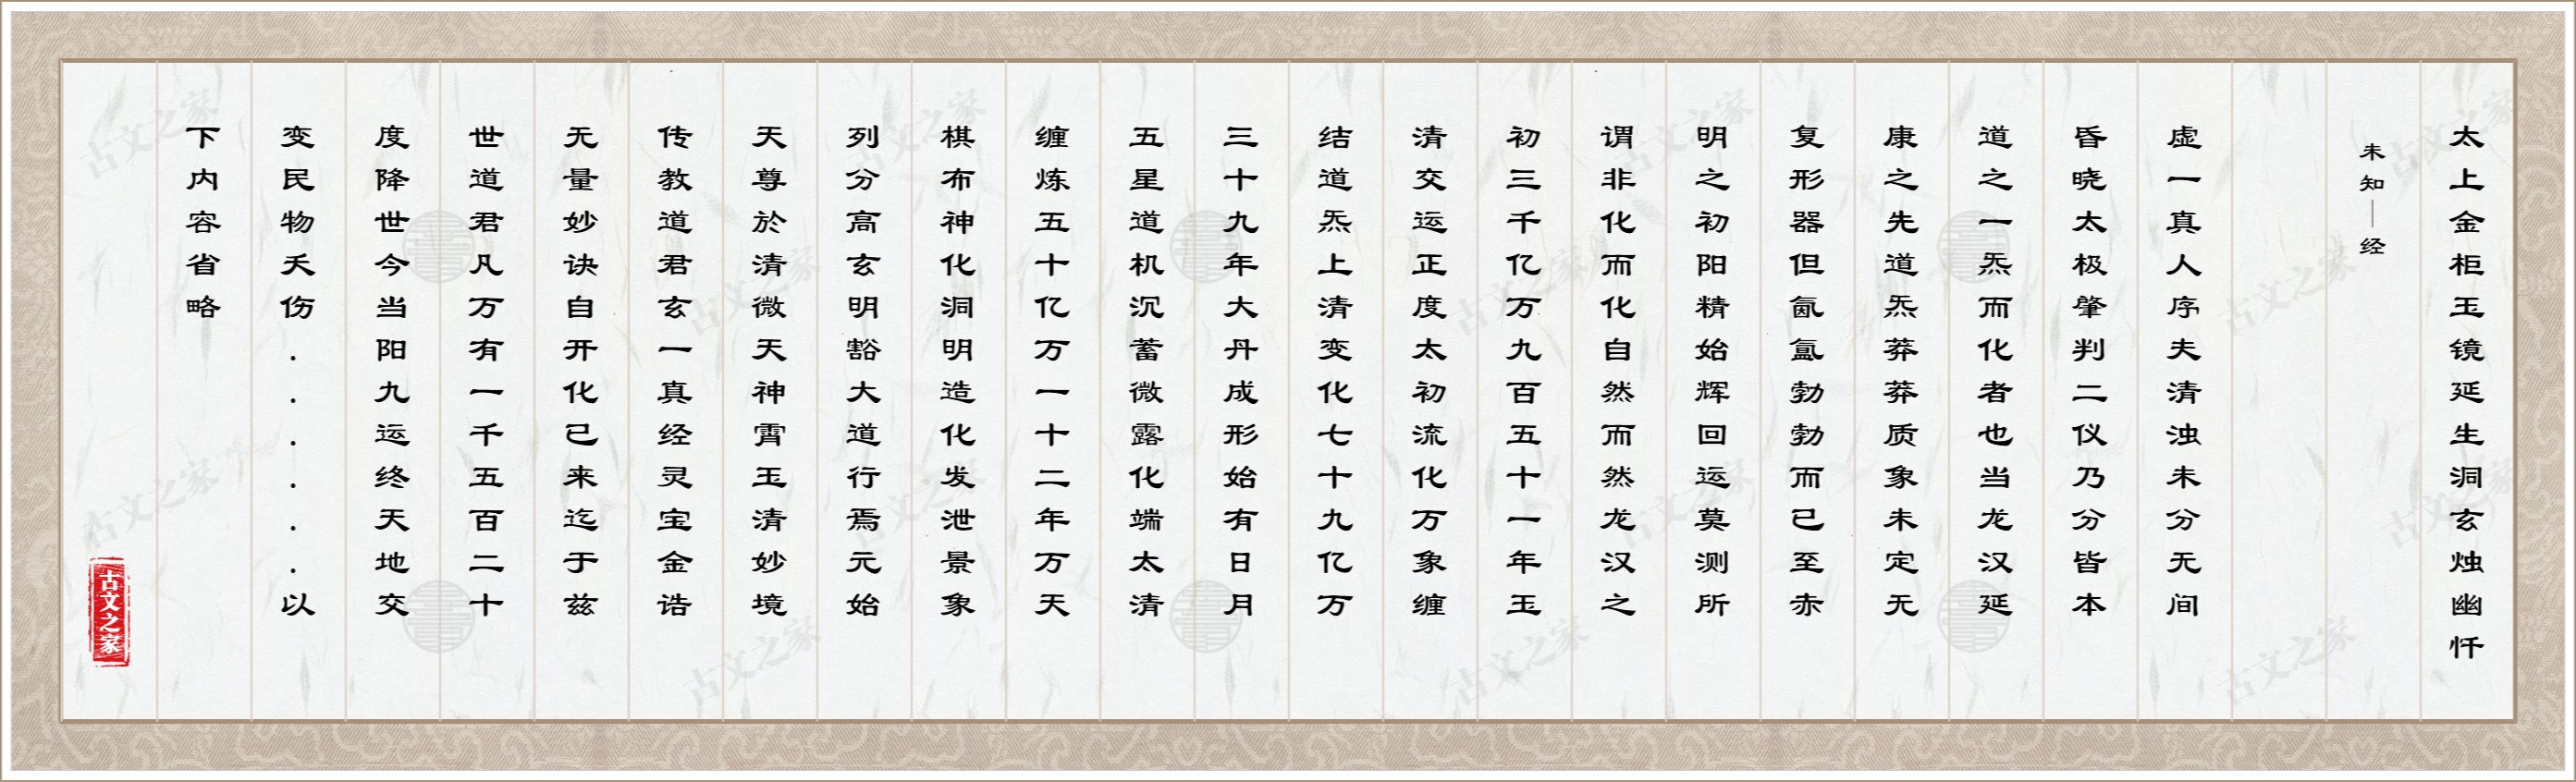 太上金柜玉镜延生洞玄烛幽忏
未知—经
虚一真人序夫清浊未分无间
昏晓太极肇判二仪乃分皆本
道之一炁而化者也当龙汉延
康之先道炁莽莽质象未定无
复形器但氤氲勃勃而已至赤
明之初阳精始辉回运莫测所
谓非化而化自然而然龙汉之
初三千亿万九百五十一年玉
清交运正度太初流化万象缠
结道炁上清变化七十九亿万
三十九年大丹成形始有日月
五星道机沉蓄微露化端太清
缠炼五十亿万一十二年万天
棋布神化洞明造化发泄景象
列分高玄明豁大道行焉元始
天尊於清微天神霄玉清妙境
传教道君玄一真经灵宝金诰
无量妙诀自开化已来迄于兹
世道君凡万有一千五百二十
度降世今当阳九运终天地交
变民物夭伤......以
下内容省略
古文之家